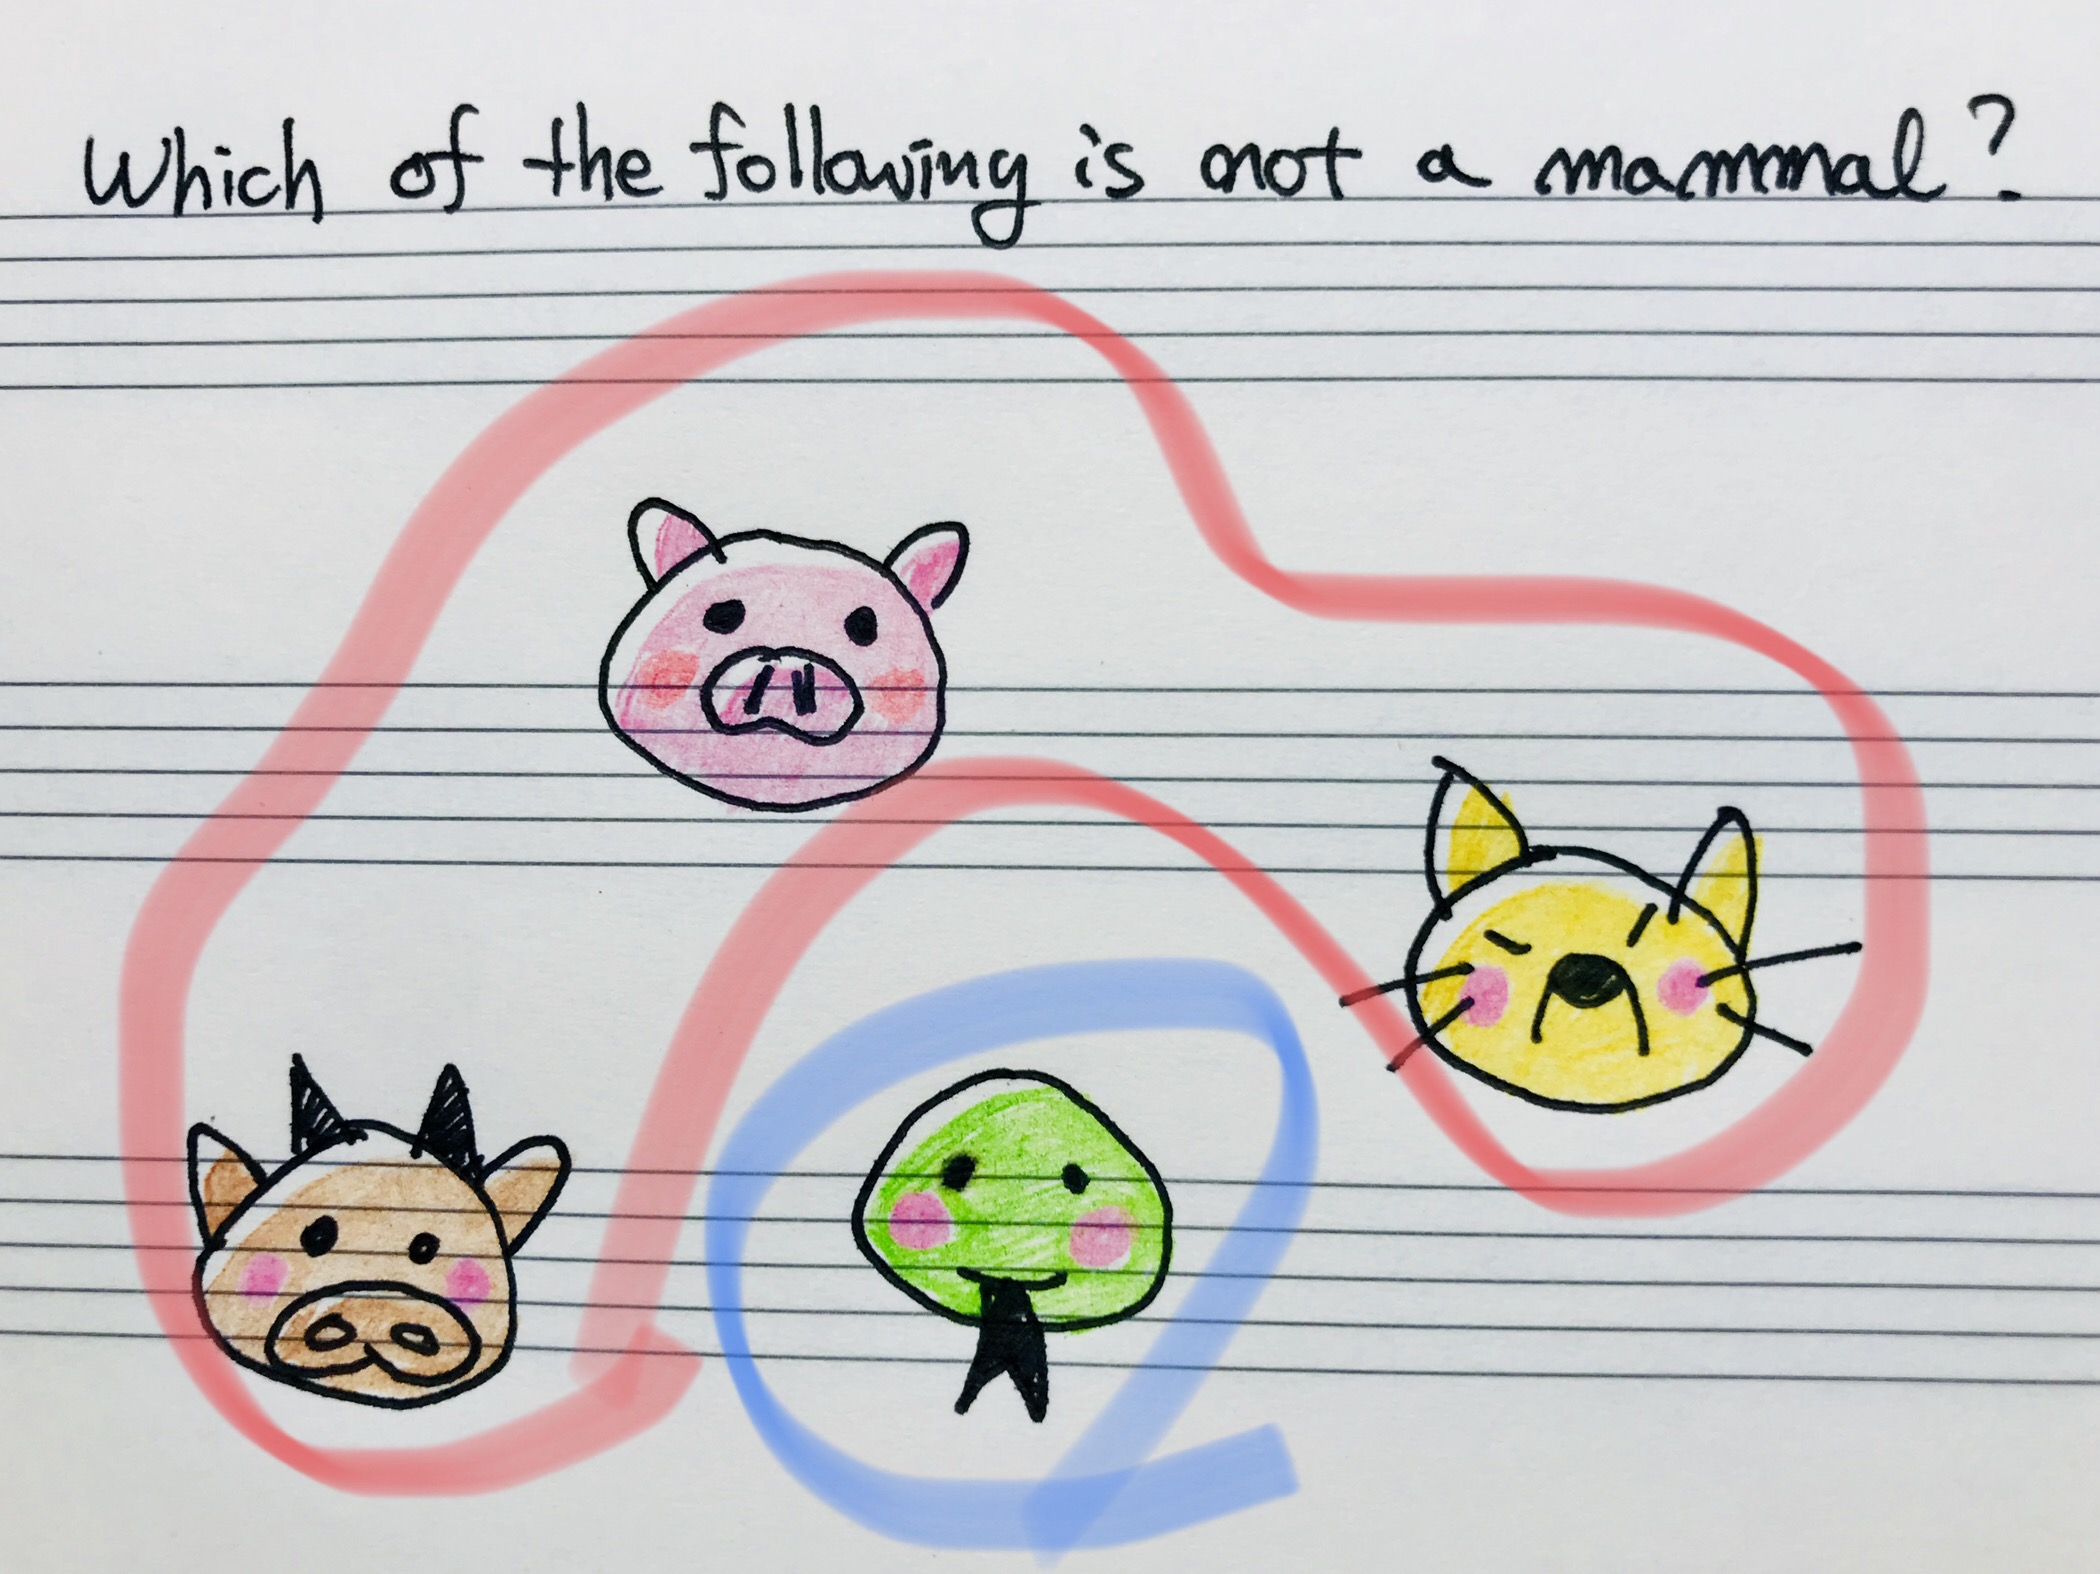 Which of the following is not a mammal?